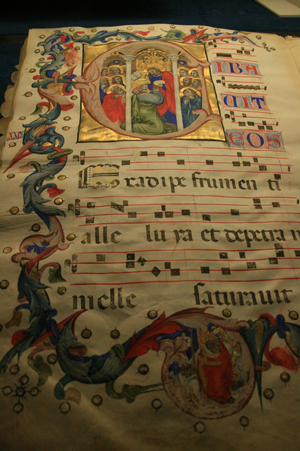 CIBA
UIT
EOS
Ex adipe frumen ti
alle lu ya et depetra
melle saturauit